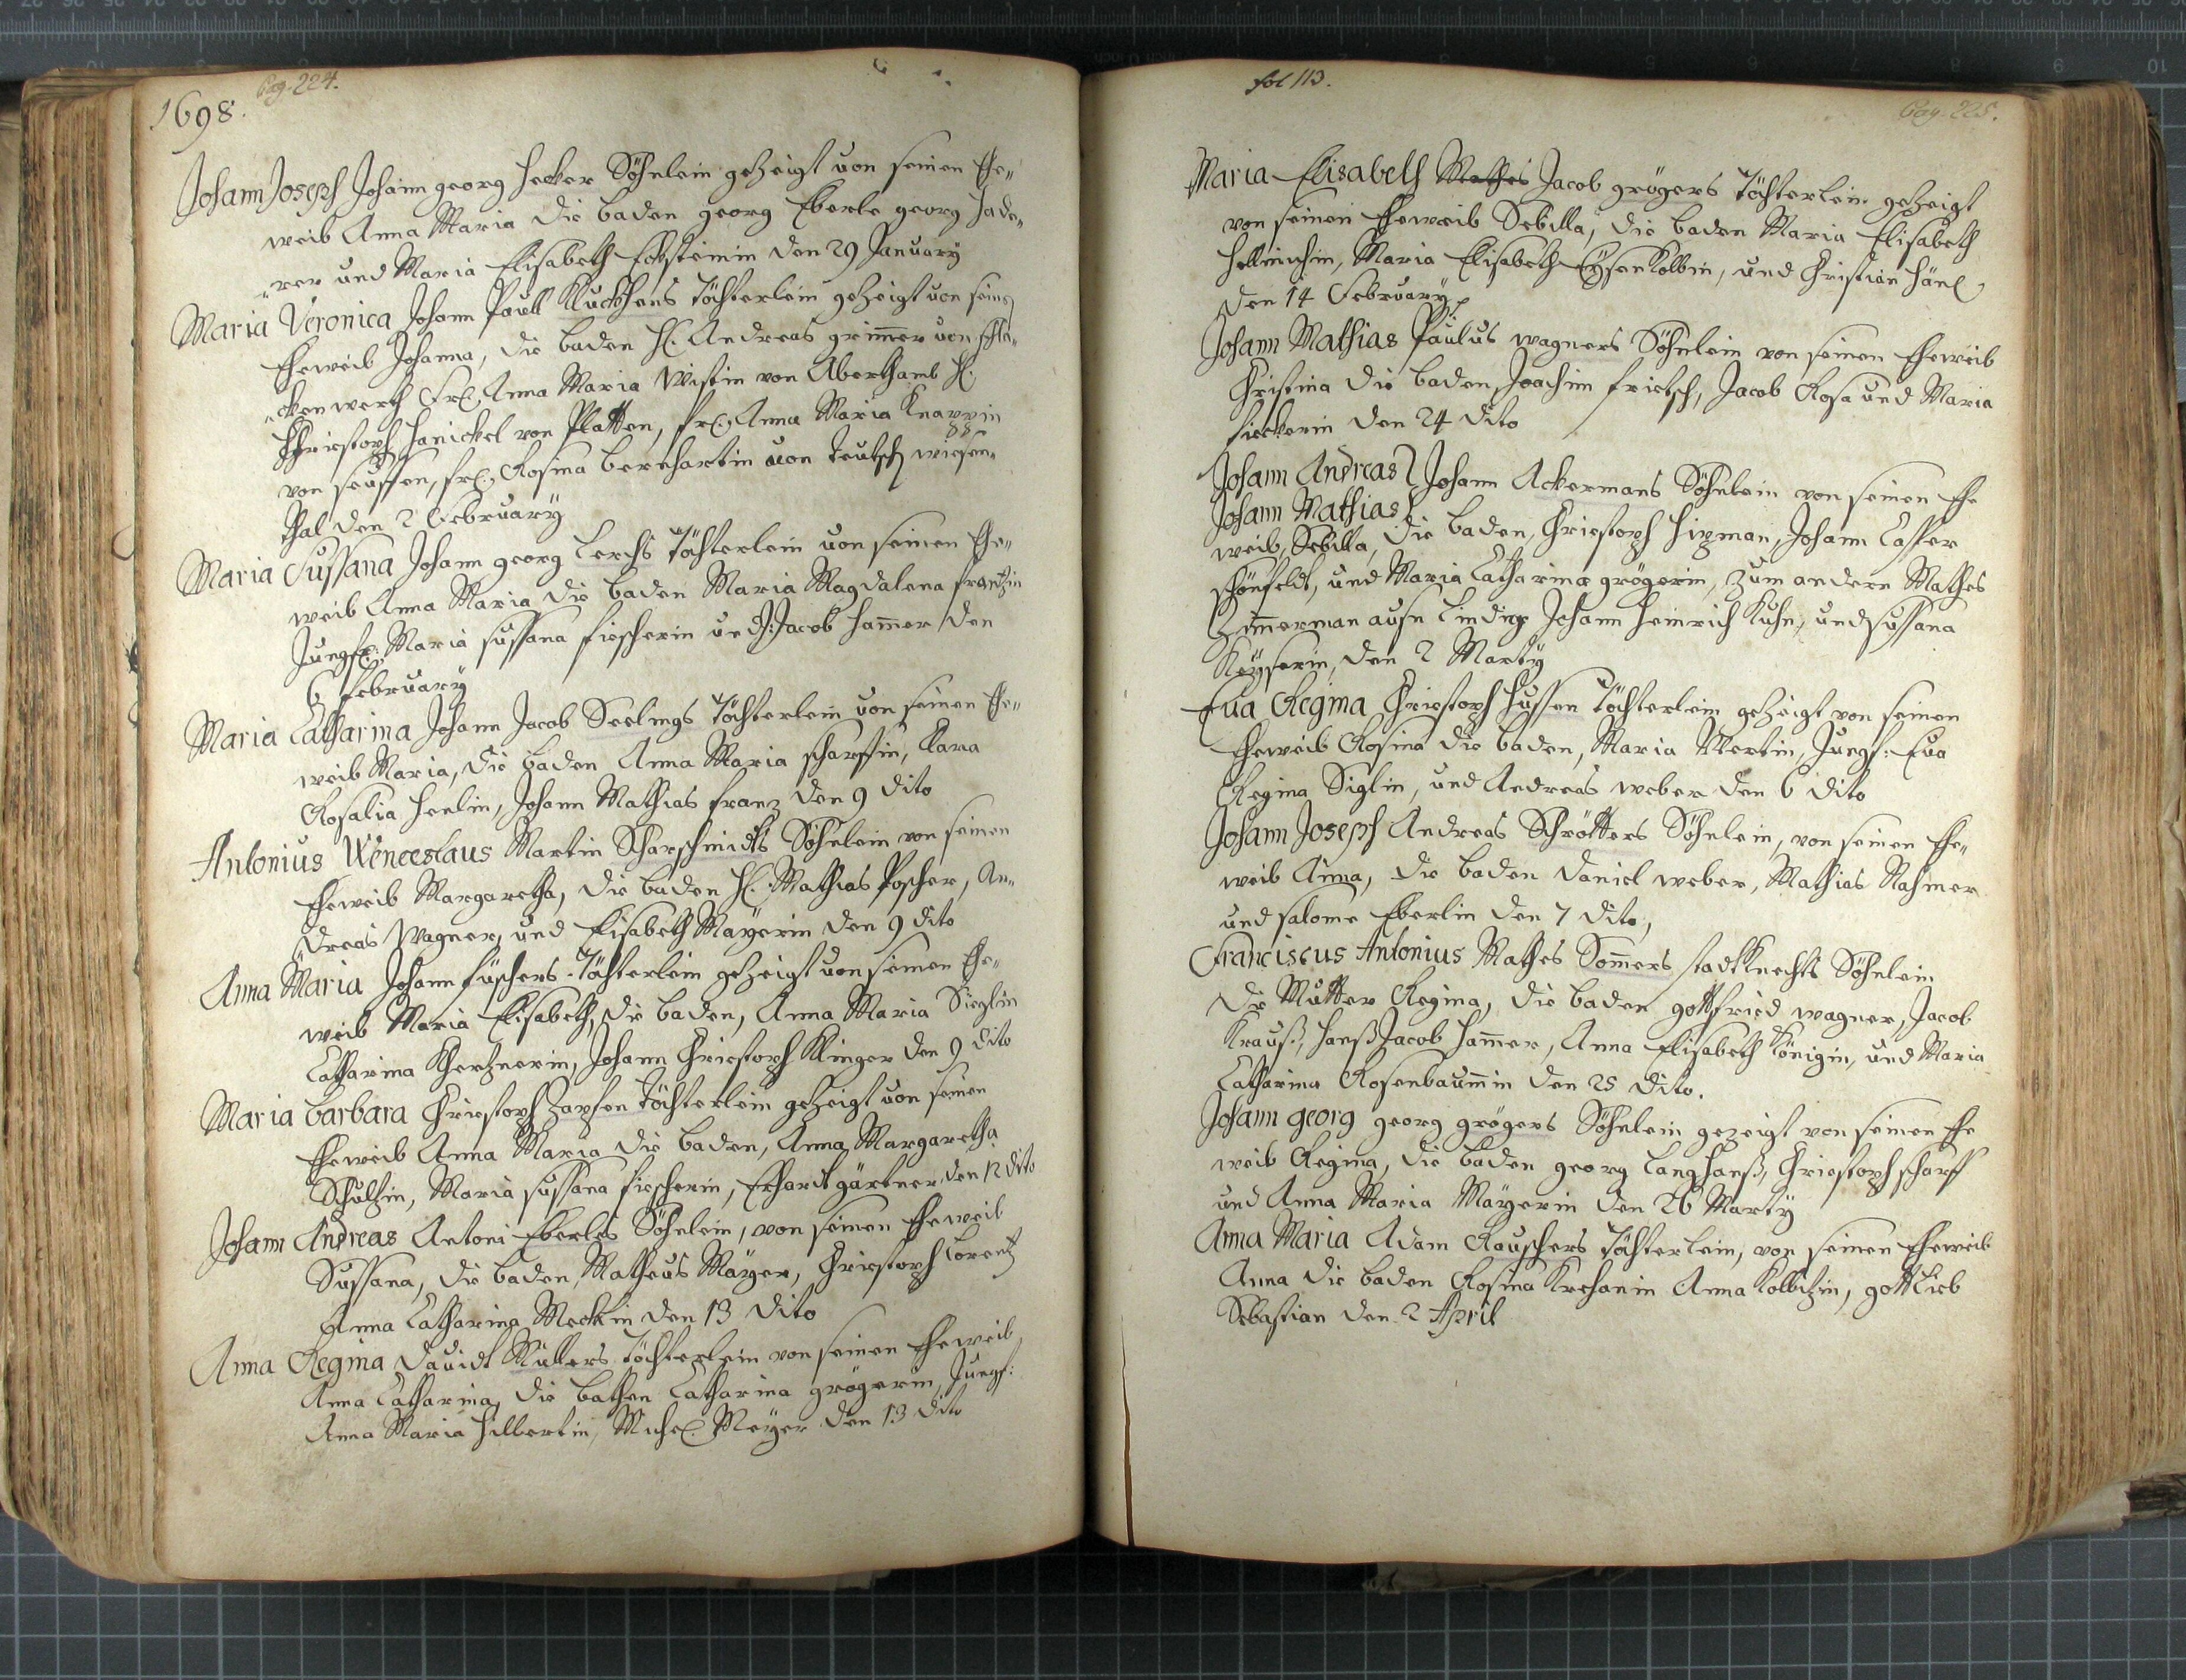 Pag. 224.
1698.
Johann Joseph Johann georg Hecker Söhnlein gezeigt von seinen Ehe„
weib Anna Maria die baden georg Eberle georg Hade„
„rer und Maria Elisabeth Ecksteinin den 29 January
Maria Veronica Johann Paull Kluckhens Töchterlein gezeigt von seine
Eheweib Johanna, die baden H. Andreas grim̄er von
„ckenwerth Fr. Anna Maria Wistin von Aberthamb H.
Christoph Hanickel von Platten, fr. Anna Maria Knappin
von seuffen, fr. Rosina bernhartin von teutsch wiesen„
thal den 2 February
Maria Sussana Johann georg Lerchs Töchterlein von seinen Ehe„
weib Anna Maria die baden Maria Magdalena frantzin
Jungfr: Maria sussana fischerin und Jacob Ham̄er den
6 february
Maria Catharina Johann Jacob Seelings Töchterlein von seinen Ehe„
weib Maria, die baden Anna Maria scharffin, Clara
Rosalia Heelin, Johann Mathias franz den 9 dito
Antonius Wenceslaus Martin Scharschmidts Söhnlein von seinen
Eheweib Margaretha, die baden H. Mathias Poscher, An„
dreas Wagner, und Elisabeth Mayerin den 9 dito
Anna Maria Johann füschers Töchterlein gezeigt von seinen Ehe„
weib Maria Elisabeth, die baden, Anna Maria Sieglin
Catharina Khertznerin, Johann Christoph Klinger den 9 dito
Maria barbara Christoph Zapfen Töchterlein gezeigt von seinen
Eheweib Anna Maria die baden, Anna Margaretha
Schultzin, Maria sussana fischerin, Erhardt gärtner den 12 dito
Johann Andreas Antoni Eberles Söhnlein, von seinen Eheweib
Sussana, die baden, Matheus Mayer, Christoph Lorentz
Anna Catharina Mecklin den 13 dito
Anna Regina Davidt Müllers Töchterlein von seinen Eheweib,
Anna Catharina, die bathen Catharina grögerin, Jungf:
Anna Maria Hilbertin, Michel Meyer den 13 dito
fol 113.
Pag. 225.
Maria Elisabeth Mathes Jacob grögers Töchterlein gezeigt
von seinen Eheweib Sebilla, die baden Maria Elisabeth
Hellmichin, Maria Elisabeth Eysenkolbin, und Christian Hänl
den 14 February
Johann Mathias Paulus wagners Söhnlein von seinen Eheweib
Christina die baden, Joachim frietsch, Jacob Rosa und Maria
fieckerin den 24 dito
Johann Andreas Johann Ackermans Söhnlein von seinen Ehe
Johann Mathias
weib, Sebilla, die baden, Christoph Hipman, Johann Casper
schönfeldt, und Maria Catharina grögerin, zum andern Mathes
Zim̄erman aufn Lindig Johann Heinrich Kuhn, und sussana
Kayserin, den 2 Marty
Eva Regina Christoph Hussen Töchterlein gezeigt von seinen
Eheweib Rosina die baden, Maria Mertin, Jungf: Eva
Regina Siglin, und Andreas weber den 6 dito
Johann Joseph Andreas Schrötters Söhnlein, von seinen Ehe„
weib Anna, die baden Daniel weber, Mathias Rahmer
und salome Eberlin den 7 dito,
Franciscus Antonius Mathes Som̄ers stadtknechts Söhnlein
die Mutter Regina, die baden gottfried wagner, Jacob
Krauß, Hanß Jacob Ham̄er, Anna Elisabeth Königin, und Maria
Catharina Rosenbaum̄in den 25 dito.
Johann georg georg grögers Söhnlein gezeigt von seinen Ehe
weib Regina, die baden georg Langhanß, Christoph scharff
und Anna Maria Mayerin den 26 Marty
Anna Maria Adam Rauschers Töchterlein, von seinen Eheweib
Anna die baden Rosina Krehanin Anna Kolbitzin, gottlieb
Sebastian den 2 April